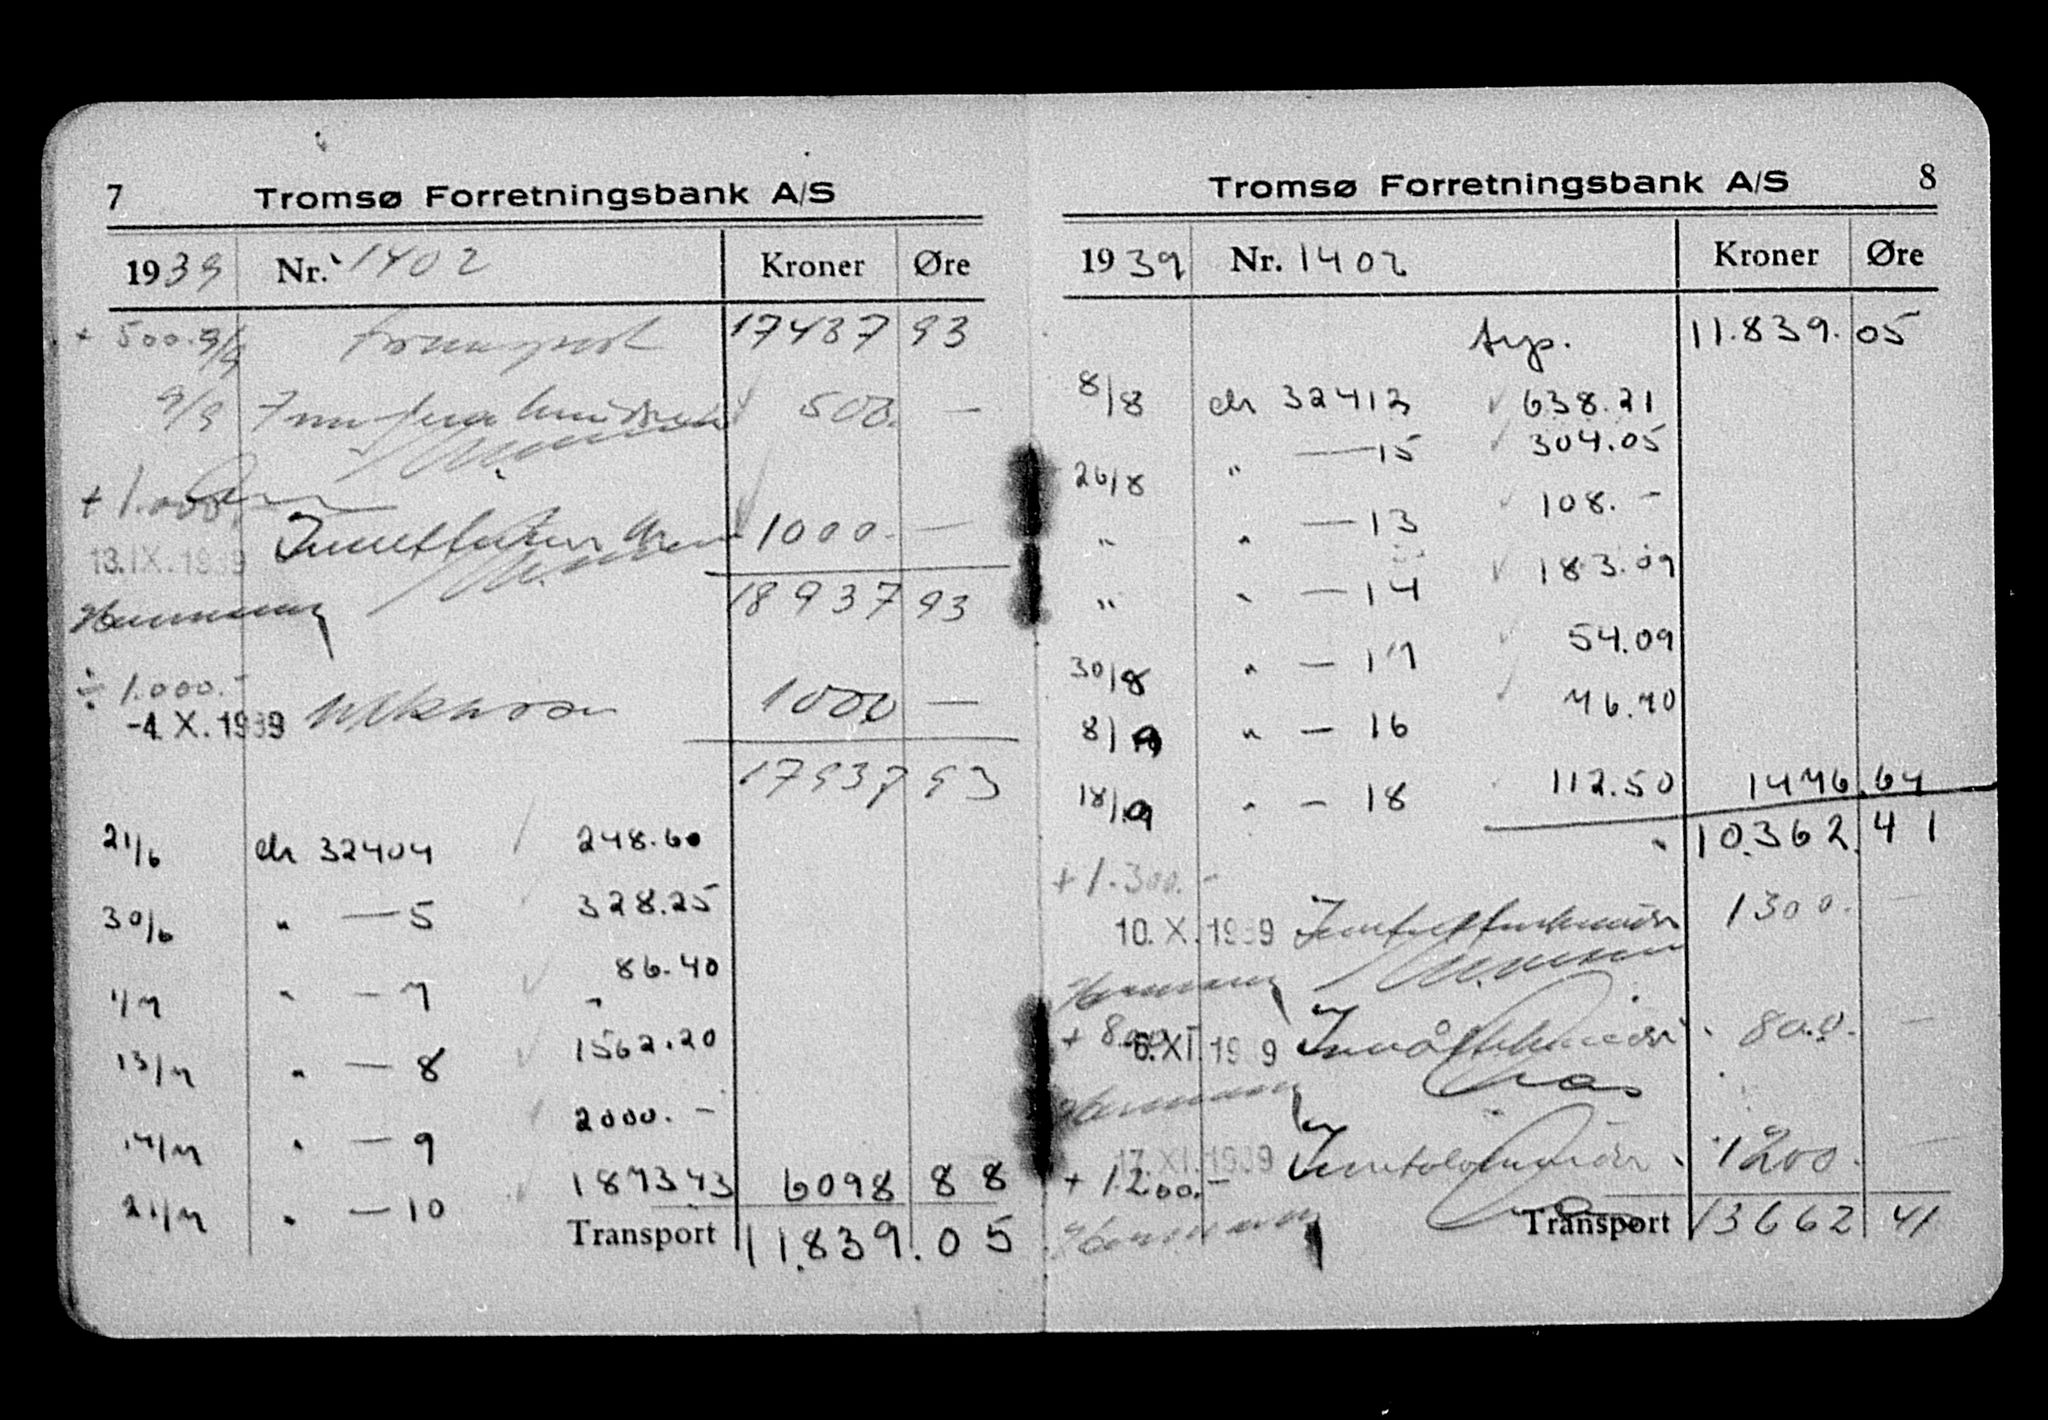 7 Tromsø Forretningsbank A/S
1939 Nr. 1402 Kroner Øre
+ 500.- 9/9 transport 17437 93
9/9 Innfemhundrede 500. —
+ 1.000.-
13. IX. 1939 Inn ettusen 1000.- —
Hermansen 18937 93
÷ 1.000.-
-4. X. 1939 1000 —
17937 93
21/6 ch 32404 248.60
30/6 " — 5 328.25
1/7 " — 7 86.40
13/7 " — 8 1562.20
14/7 " — 9 2000.-
21/7 " — 10 1873.43 6098 88
Transport 11.839.05
Tromsø Forretningsbank A/S 8
1939 Nr. 1402 Kroner Øre
trp. 11.839.05
8/8 ch 32412 638.21
26/8 " — 15 304.05
" " — 13 108.-
" " — 14 183.09
30/8 " — 17 54.09
8/9 " — 16 76.70
18/9 " — 18 112.50 1476.64
" 10.362.41
+ 1.300.-
10. X. 1939 1300. —
Hermansen
+ 800
-6. XI. 1939 Inn åttehundre 800. —
Hermansen
17. XI. 1939 Inn tolvhundre 1200. —
+ 1.200.-
Hermansen Transport 13662 41